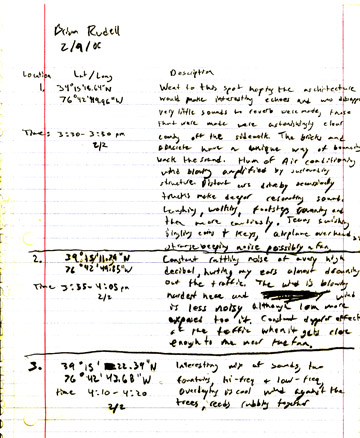 Brian Rudell
2/9/06
Location Lat/Long Description
1. 39°15'16.64"N Went to this spot hoping the architecture
76°42'49.96"W would make interesting echoes and was
very little sounds or reverb were made, those
that were made were astonishingly clear
Time: 3:20-3:30 pm coming off the sidewalk. The bricks and
2/2 concrete have a unique way of bouncing
back the sound. Hum of Air conditioning
wind blowing amplified by surrounding
structure. Distant cars driveby occasionally
trucks make deeper resonating sounds.
laughing, walking, footsteps
then more
keys, airplane overhead
strange beeping noise possibly a fan.
2. 39°15'11.79"N Constant rattling noise at very high
76°42'49.85"W decibel, hurting my ears almost drowning
out the traffic. The wind is blowing
Time 3:35-4:05 pm hardest here and wind
2/2 is less noisy although I am more
exposed too it. Constant doppler effect
of the traffic when it gets close
enough to me near the fan.
3. 39°15' 22.39"N Interesting mix of sounds, two
76°42'43.68"W fountains, hi-freq & low-freq
time 4:10-4:20 overlapping is cool wind against the
2/2 trees, reeds rubbing together